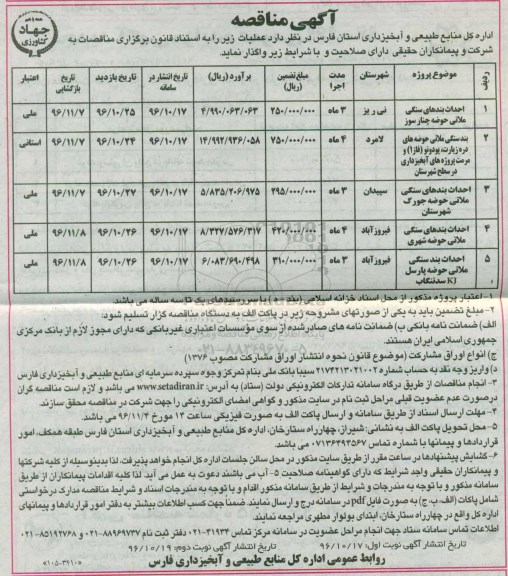 آگهی مناقصه
جهاد کشاورزی
اداره کل منابع طبیعی و آبخیزداری استان فارس در نظر دارد عملیات زیر را به استناد قانون برگزاری مناقصات به
شرکت و پیمانکاران حقیقی دارای صلاحیت و با شرایط زیر واگذار نماید.
ردیف موضوع پروژه شهرستان مدت اجرا مبلغ تضمین (ریال) برآورد (ریال) تاریخ انتشار در سامانه تاریخ بازدید تاریخ بازگشایی اعتبار
۱ احداث بندهای سنگی ملاتی حوضه چنار سوز نی ریز ۳ ماه ۲۵۰/۰۰۰/۰۰۰ ۴/۹۹۰/۰۶۳/۰۶۳ ۹۶/۱۰/۱۷ ۹۶/۱۰/۲۵ ۹۶/۱۱/۷ ملی
۲ بند سنگی ملاتی حوضه های دره زیارت، پودونو (فاز۱) و مرمت پروژه های آبخیزداری در سطح شهرستان لامرد ۴ ماه ۷۵۰/۰۰۰/۰۰۰ ۱۴/۹۹۲/۹۳۶/۰۵۸ ۹۶/۱۰/۱۷ ۹۶/۱۰/۲۴ ۹۶/۱۱/۷ استانی
۳ احداث بندهای سنگی ملاتی حوضه جورک شهرستان سپیدان ۳ ماه ۲۹۵/۰۰۰/۰۰۰ ۵/۸۳۵/۲۰۶/۹۷۵ ۹۶/۱۰/۱۷ ۹۶/۱۰/۲۷ ۹۶/۱۱/۷ ملی
۴ احداث بندهای سنگی ملاتی حوضه شهری فیروزآباد ۴ ماه ۴۲۰/۰۰۰/۰۰۰ ۸/۳۲۷/۵۷۶/۳۱۷ ۹۶/۱۰/۱۷ ۹۶/۱۰/۲۶ ۹۶/۱۱/۸ ملی
۵ احداث بند سنگی ملاتی حوضه پارسل KJ سد تنگاب فیروزآباد ۳ ماه ۳۱۰/۰۰۰/۰۰۰ ۶/۰۸۳/۶۹۰/۴۹۸ ۹۶/۱۰/۱۷ ۹۶/۱۰/۲۶ ۹۶/۱۱/۸ ملی
۱- اعتبار پروژه مذکور از محل اسناد خزانه اسلامی با سررسیدهای یک تا سه ساله می باشد.
۲- مبلغ تضمین باید به یکی از صورتهای مشروحه زیر در پاکت الف به دستگاه مناقصه گزار تسلیم شود:
الف) ضمانت نامه بانکی ب) ضمانت نامه های صادر شده از سوی مؤسسات اعتباری غیربانکی که دارای مجوز لازم از بانک مرکزی
جمهوری اسلامی ایران هستند.
ج) انواع اوراق مشارکت (موضوع قانون نحوه انتشار اوراق مشارکت مصوب ۱۳۷۶)
د) واریز وجه نقد به حساب شماره ۲۱۷۴۲۱۳۰۲۱۰۰۲ سیبا بانک ملی بنام تمرکز وجوه سپرده سرمایه ای منابع طبیعی و آبخیزداری فارس
۳- انجام مناقصات از طریق درگاه سامانه تدارکات الکترونیکی دولت (ستاد) به آدرس www.setadiran.ir می باشد و لازم است مناقصه گران
درصورت عدم عضویت قبلی مراحل ثبت نام در سایت مذکور و گواهی امضای الکترونیکی را جهت شرکت در مناقصه محقق سازند.
۴- مهلت ارسال اسناد از طریق سامانه و ارسال پاکت الف به صورت فیزیکی ساعت ۱۴ مورخ ۹۶/۱۱/۴ می باشد.
۵- محل تحویل پاکت الف به نشانی: شیراز، چهارراه ستارخان، اداره کل منابع طبیعی و آبخیزداری استان فارس طبقه همکف، امور
قراردادها و پیمانها با شماره تماس ۰۷۱۳۶۴۹۳۵۶۷ می باشد.
۶- گشایش پیشنهادها در ساعت مقرر از طریق سایت مذکور در محل سالن جلسات اداره کل انجام خواهد پذیرفت. لذا بدینوسیله از کلیه شرکتها
و پیمانکاران حقیقی واجد شرایط که دارای گواهینامه صلاحیت ۵- آب می باشند دعوت به عمل می آید. لذا کلیه اقدامات پیمانکاران از طریق
سامانه مذکور و با توجه به مندرجات و شرایط از طریق سامانه مذکور اقدام و با توجه به مندرجات اسناد و شرایط مناقصه مدارک درخواستی
شامل پاکات (الف، ب، ج) به صورت فایل pdf در سامانه درج و ارسال نمایند. ضمناً جهت کسب اطلاعات بیشتر به دفتر امور قراردادها و پیمانهای
اداره کل واقع در چهارراه ستارخان، ابتدای بولوار مطهری مراجعه نمایند.
اطلاعات تماس سامانه ستاد جهت انجام مراحل عضویت در سامانه مرکز تماس: ۴۱۹۳۴-۰۲۱ دفتر ثبت نام ۸۸۹۶۹۷۳۷ و ۸۵۱۹۳۷۶۸-۰۲۱
تاریخ انتشار آگهی نوبت اول: ۹۶/۱۰/۱۷ تاریخ انتشار آگهی نوبت دوم: ۹۶/۱۰/۱۹
روابط عمومی اداره کل منابع طبیعی و آبخیزداری فارس
«۱۰۵-۳۹۱۰»